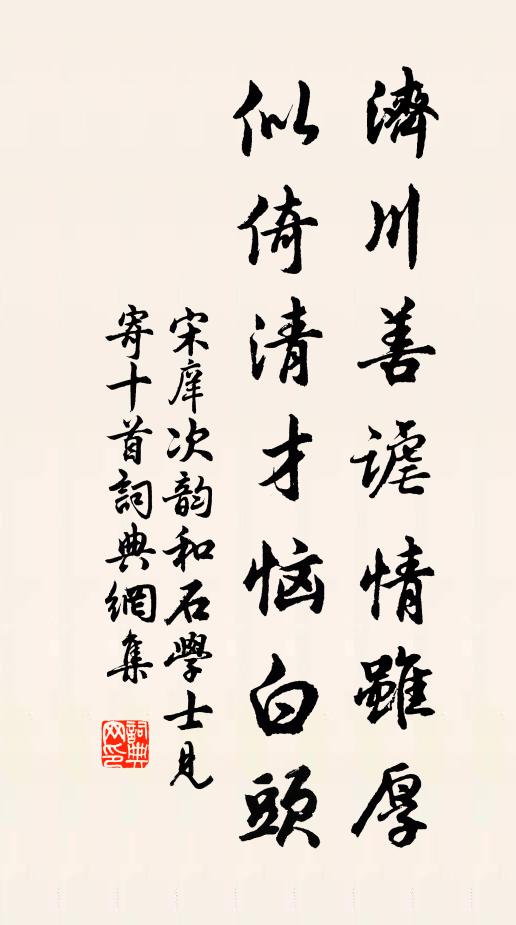 濟川善謔情雖厚
似倚清才恼白頭
宋庠次韵和石學士見
寄十首詞典網集
詞典
网印